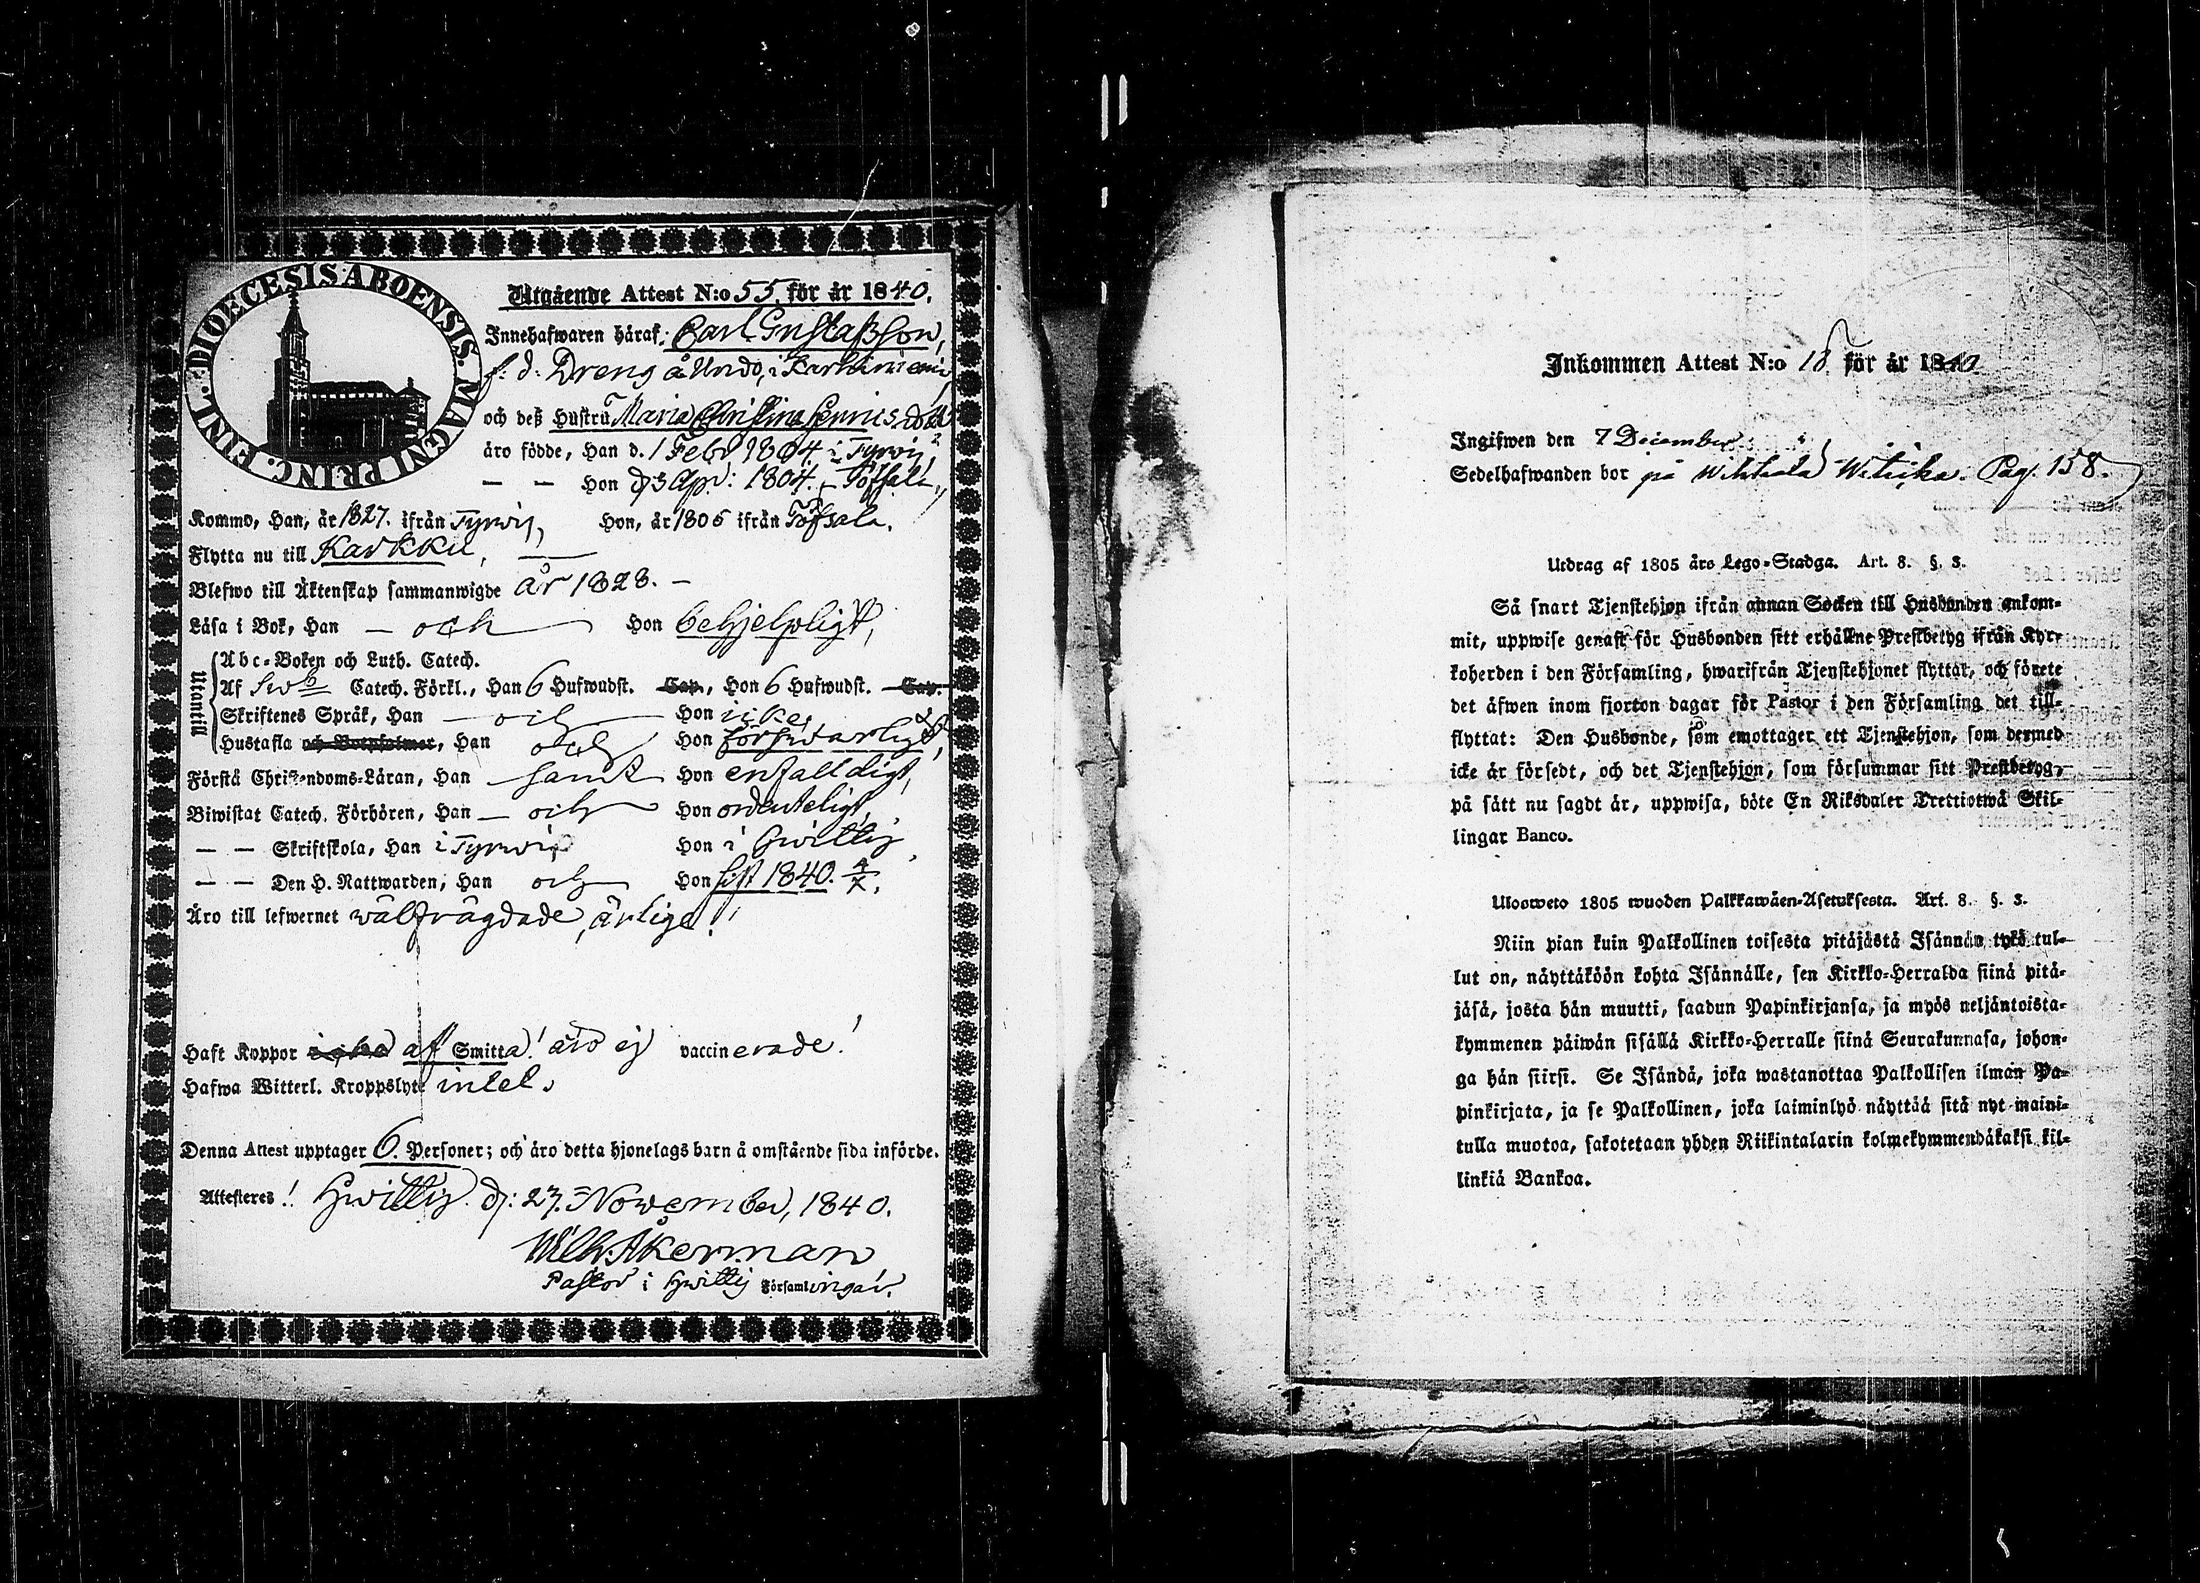 FINL. DIOECESIS ABOENSIS. MAGNI PRINC.
Utgående Attest N:o 55. för år 1840.
Innehafwaren häraf: Carl Gustafsson,
f. d. Dreng å Undo, i Karhiniemi
och deß Hustru Maria Christina Hennics dotter
äro födde, Han d. 1 Febr 1804. i Tyrvis,
— — Hon d. 3 Apr: 1804. i Töfsala,
Kommo, Han, år 1827. ifrån Tyrwis, Hon, år 1805 ifrån Töfsala.
Flytta nu till Karkku,
Blefwo till Äktenskap sammanwigde år 1828. —
Läsa i Bok, Han — och — Hon behjelpligt,
Utantill
Abc-Boken och Luth. Catech.
Af Swb Catech. Förkl., Han 6 Hufwudst. Cap., Hon 6 Hufwudst. Cap.
Skriftenes Språk, Han — och — Hon icke,
Hustafla och Botpsalmer, Han och Hon försvarligt,
Förstå Christendoms-Läran, Han — samt Hon enfalldigt,
Biwistat Catech. Förhören, Han — och — Hon ordenteligt,
— — Skriftskola, Han i Tyrwis Hon i Hwittis,
— — Den H. Nattwarden, Han och Hon sist 1840. 4/X.
Äro till lefwernet wälfrägdade, ärliga!
Haft Koppor icke af Smitta! äro ej vaccinerade!
Hafwa Witterl. Kroppslyte intet.
Denna Attest upptager 6. Personer; och äro detta hjonelags barn å omstående sida införde.
Attesteres! Hwittis d: 27. November, 1840.
Wilh. Åkerman
Pastor i Hwittis Församlingar.
Inkommen Attest N:o 18 för år 1840
Ingifwen den 7 December
Sedelhafwanden bor på Wihtala Pag. 158.
Utdrag af 1805 års Lego-Stadga. Art. 8. §. 3.
Så snart Tjenstehjon ifrån annan Socken till Husbonden ankom-
mit, uppwise genast för Husbonden sitt erhållne Prestbetyg ifrån Kyr-
koherden i den Församling, hwarifrån Tjenstehjonet flyttat, och förete
det äfwen inom fjorton dagar för Pastor i den Församling det till-
flyttat: Den Husbonde, som emottager ett Tjenstehjon, som dermed
icke är försedt, och det Tjenstehjon, som försummar sitt Prestbetyg,
på sätt nu sagdt är, uppwisa, böte En Riksdaler Trettiotwå Skil-
lingar Banco.
Uloosweto 1805 wuoden Palkkawäen-Asetuksesta. Art. 8. §. 3.
Niin pian kuin Palkollinen toisesta pitäjästä Isännän tykö tul-
lut on, näyttäköön kohta Isännälle, sen Kirkko-Herralda siinä pitä-
jäsä, josta hän muutti, saadun Papinkirjansa, ja myös neljäntoista-
kymmenen päiwän sisällä Kirkko-Herralle siinä Seurakunnasa, johon-
ga hän siirsi. Se Isändä, joka wastanottaa Palkollisen ilman Pa-
pinkirjata, ja se Palkollinen, joka laiminlyö näyttää sitä nyt maini-
tulla muotoa, sakotetaan yhden Riikintalarin kolmekymmendäkaksi kil-
linkiä Bankoa.